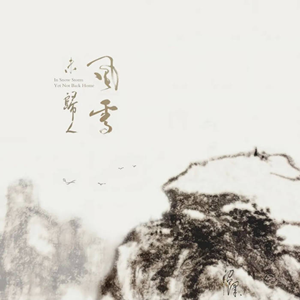 風雪
未歸人
In Snow Storm
Yet Not Back Home